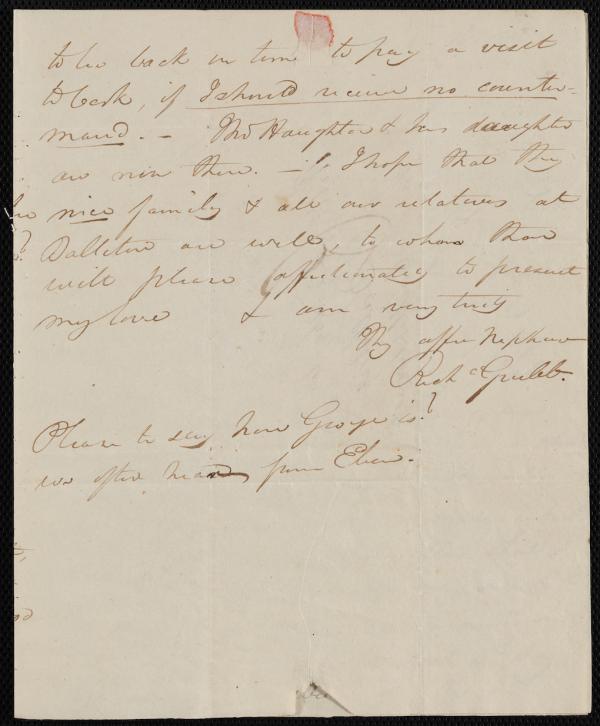 to be back in time to pay a visit
to Cork, if I should receive no counter-
mand. – Tho Haughton & his daughter
are now there. – I hope that thy
nice family & all our relatives at
are well, to whom thou
will please affectionately to present
my love & am very truly
Thy affte Nephew
Richd Grubb.
Please to say how George is?
we often heard from Eben.